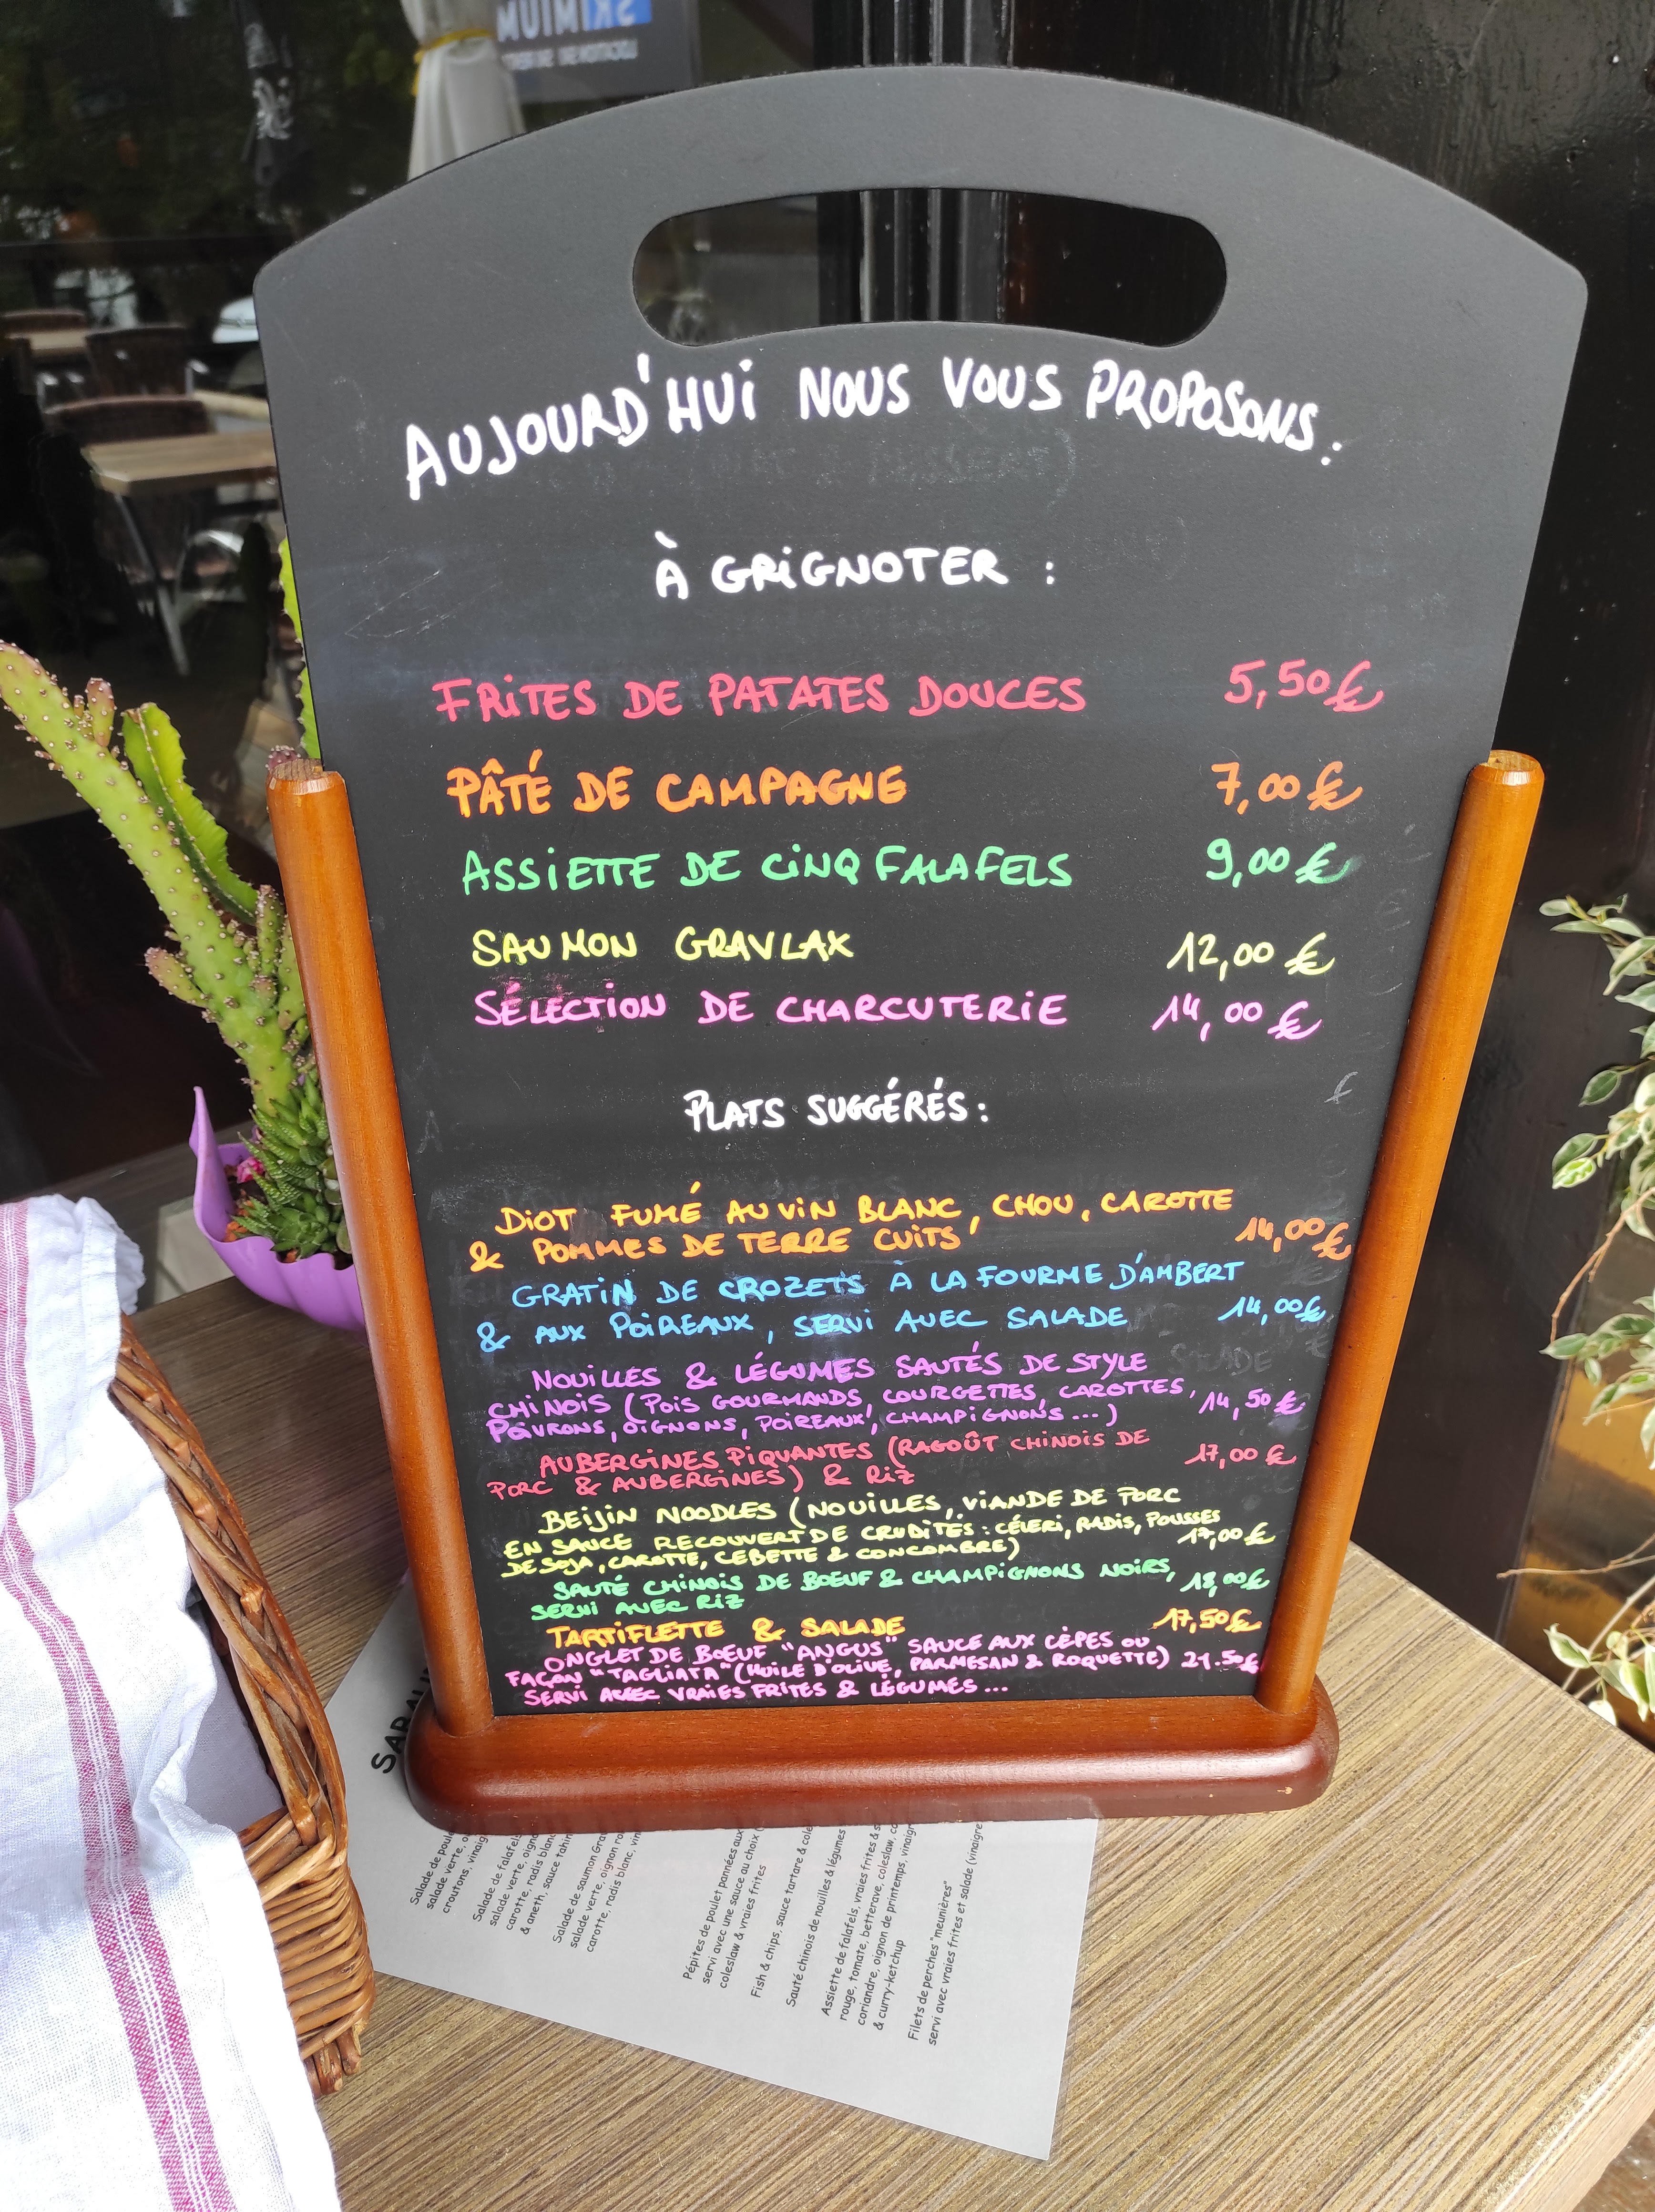 SKIMIUM
AUJOURD'HUI NOUS VOUS PROPOSONS :
À GRIGNOTER :
FRITES DE PATATES DOUCES 5,50€
PÂTÉ DE CAMPAGNE 7,00€
ASSIETTE DE CINQ FALAFELS 9,00€
SAUMON GRAVLAX 12,00€
SÉLECTION DE CHARCUTERIE 14,00€
PLATS SUGGÉRÉS :
DIOT FUMÉ AU VIN BLANC, CHOU, CAROTTE
& POMMES DE TERRE CUITS 14,00€
GRATIN DE CROZETS À LA FOURME D'AMBERT
& AUX POIREAUX, SERVI AVEC SALADE 14,00€
NOUILLES & LÉGUMES SAUTÉS DE STYLE
CHINOIS (POIS GOURMANDS, COURGETTES, CAROTTES, 14,50€
POIVRONS, OIGNONS, POIREAUX, CHAMPIGNONS...)
AUBERGINES PIQUANTES (RAGOÛT CHINOIS DE 17,00€
PORC & AUBERGINES) & RIZ
BEIJIN NOODLES (NOUILLES, VIANDE DE PORC
EN SAUCE RECOUVERT DE CRUDITÉS : CÉLERI, RADIS, POUSSES 17,00€
DE SOJA, CAROTTE, CEBETTE & CONCOMBRE)
SAUTÉ CHINOIS DE BOEUF & CHAMPIGNONS NOIRS,
SERVI AVEC RIZ
TARTIFLETTE & SALADE 17,50€
ONGLET DE BOEUF "ANGUS" SAUCE AUX CÈPES OU
FAÇON "TAGLIATA" (HUILE D'OLIVE, PARMESAN & ROQUETTE) 21.50€
SERVI AVEC VRAIES FRITES & LÉGUMES...
Salade de
salade verte,
croutons,
Salade de falafels
salade verte,
carotte, radis blanc
& aneth, sauce
Salade de saumon
salade verte, oignon
carotte, radis blanc,
Pépites de poulet pannées aux
servi avec une sauce au choix (
coleslaw & vraies frites
Fish & chips, sauce tartare &
Sauté chinois de nouilles & légumes
Assiette de falafels, vraies frites &
rouge, tomate, betterave, coleslaw,
coriandre, oignon de printemps,
& curry-ketchup
Filets de perches "meunières"
servi avec vraies frites et salade (vinaigre